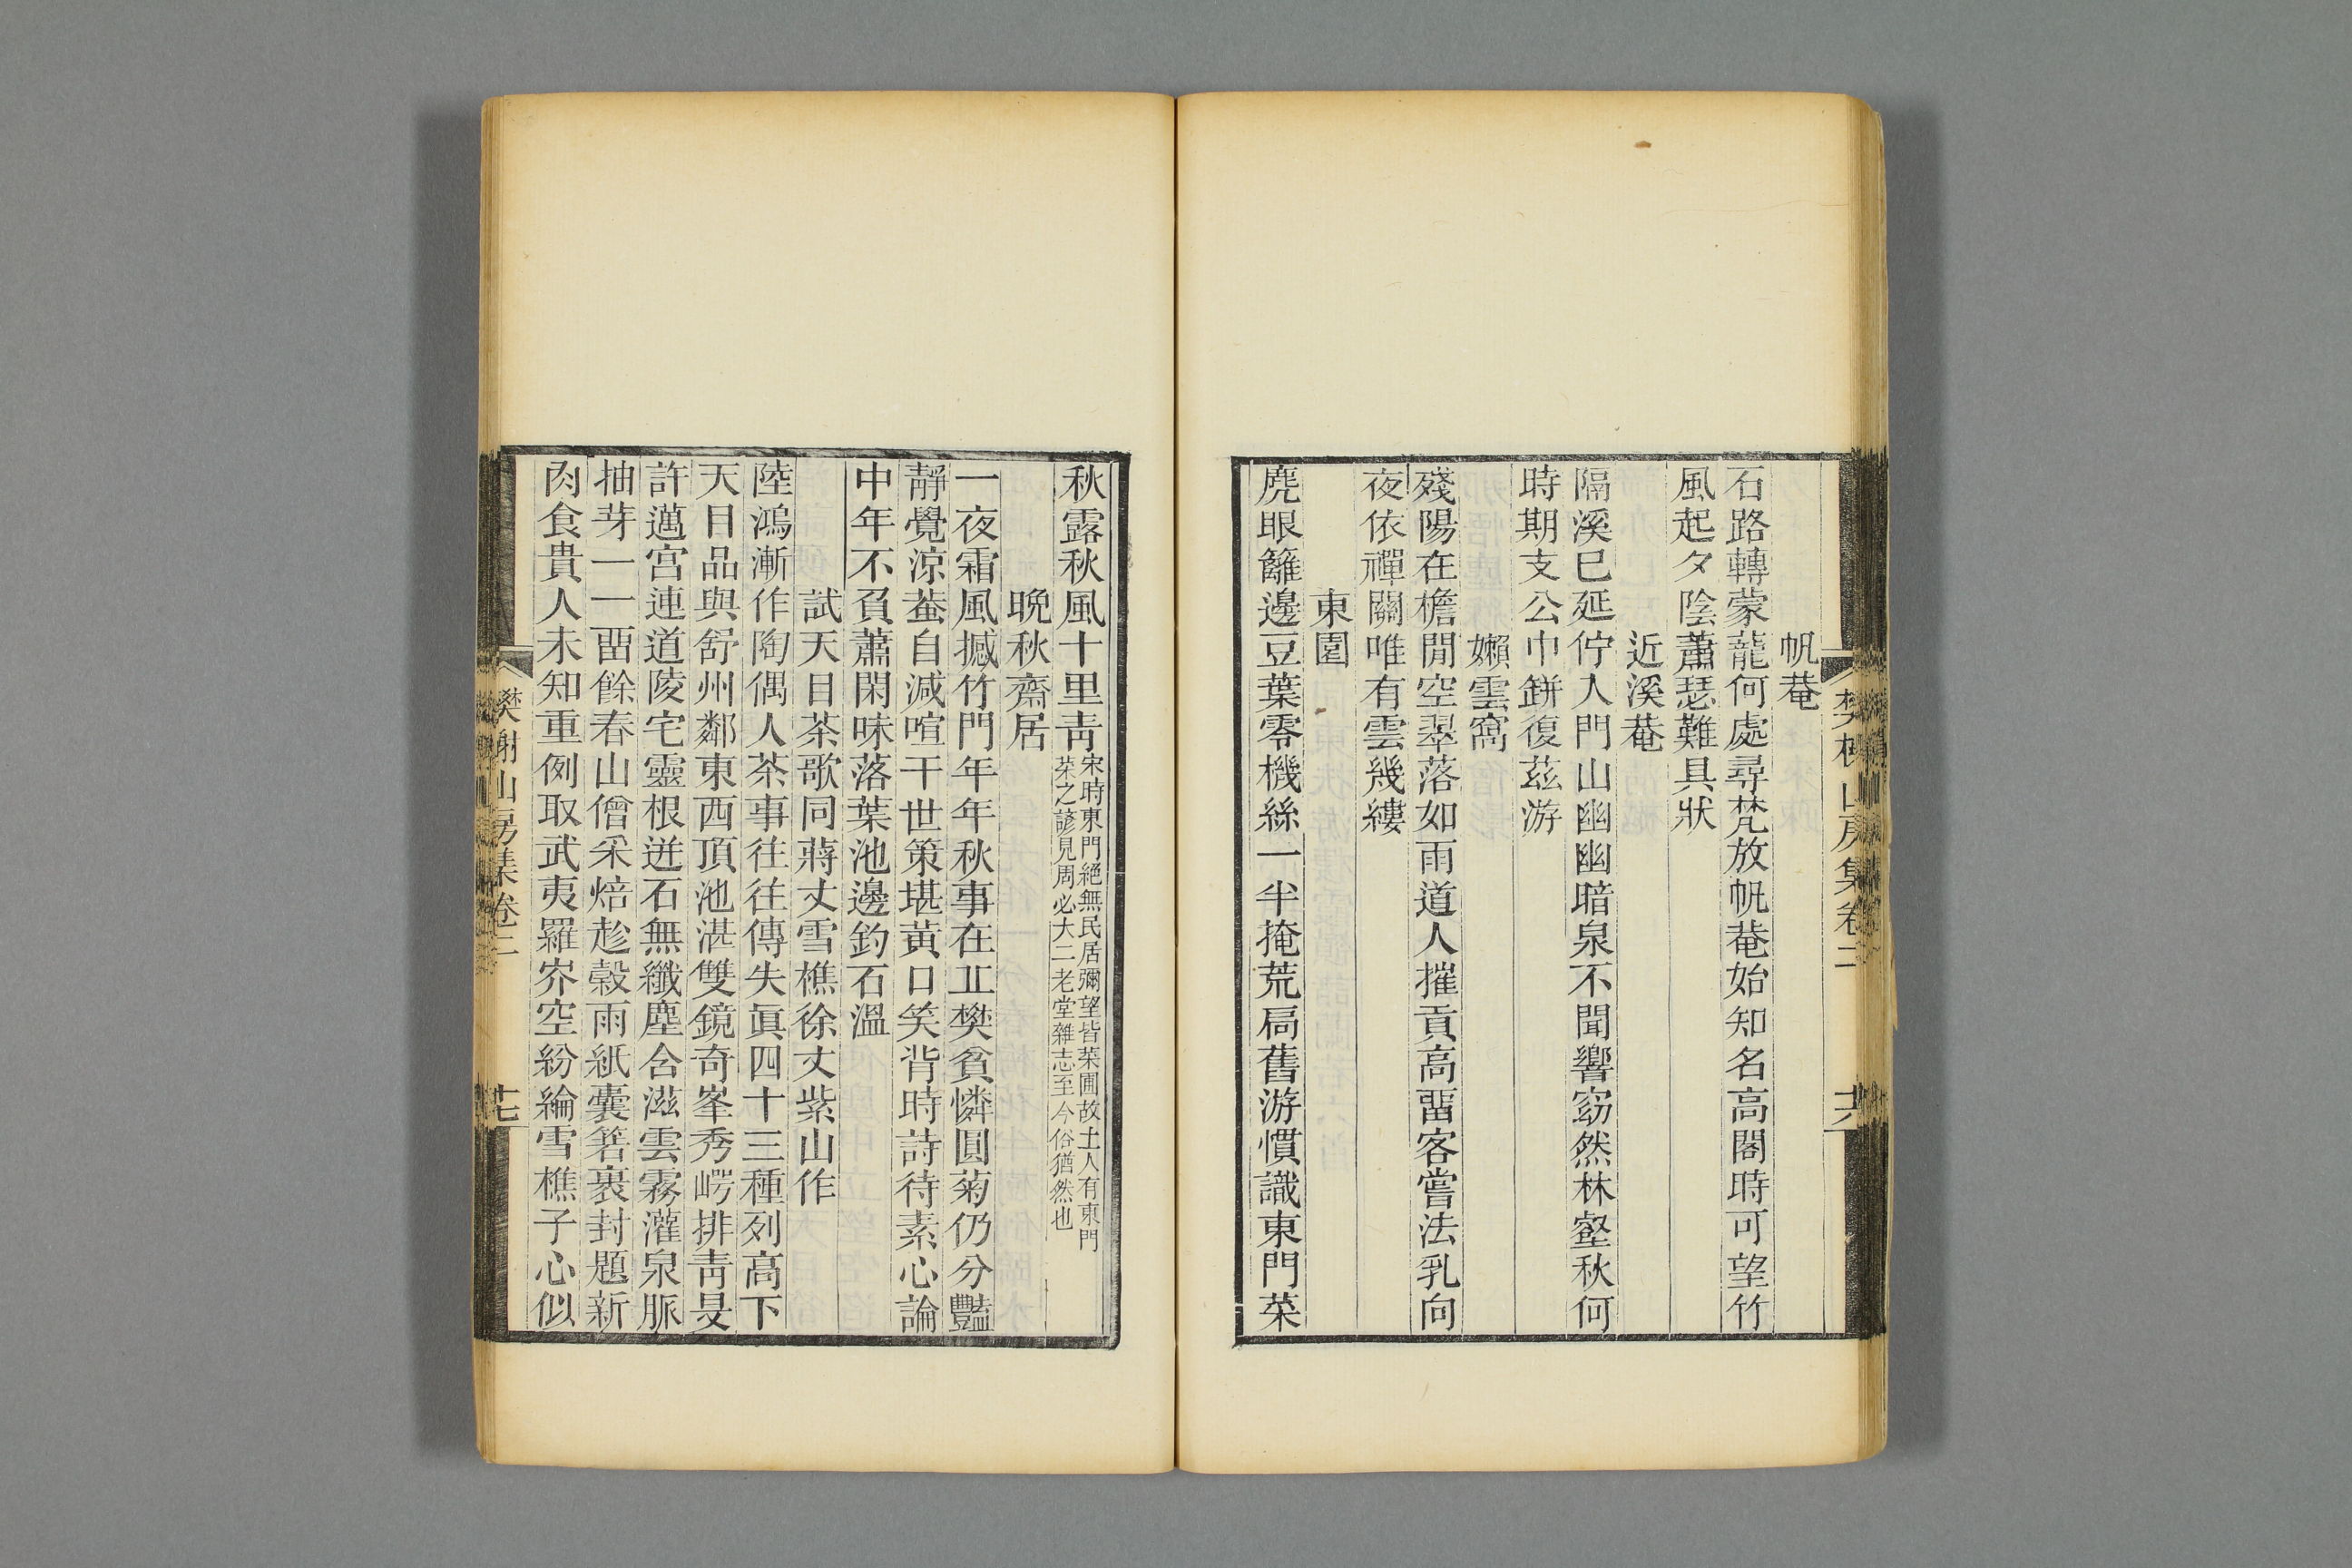 樊榭山房集卷二
十六
帆菴
石路轉蒙蘢何處尋梵放帆菴始知名高閣時可望竹
風起夕陰蕭瑟難具狀
近溪菴
隔溪已延佇入門山幽幽暗泉不聞響窈然林壑秋何
時期支公巾缾復茲游
嬾雲窩
殘陽在檐閒空翠落如雨道人摧貢高畱客嘗法乳向
夜依禪關唯有雲幾縷
東園
麂眼籬邊豆葉零機絲一半掩荒扃舊游慣識東門菜
秋露秋風十里靑
宋時東門絕無民居彌望皆菜圃故土人有東門
菜之諺見周必大二老堂雜志至今俗猶然也
晩秋齋居
一夜霜風撼竹門年年秋事在丘樊貧憐圓菊仍分豔
靜覺涼蛬自減喧干世策堪黃口笑背時詩待素心論
中年不負蕭閑味落葉池邊釣石溫
試天目茶歌同蔣丈雪樵徐丈紫山作
陸鴻漸作陶偶人茶事往往傳失眞四十三種列高下
天目品與舒州鄰東西頂池湛雙鏡奇峯秀崿排靑旻
許邁宮連道陵宅靈根迸石無纖塵含滋雲霧灌泉脈
抽芽一一畱餘春山僧采焙趁穀雨紙囊箬裹封題新
肉食貴人未知重例取武夷羅岕空紛綸雪樵子心似
樊榭山房集卷二
十七